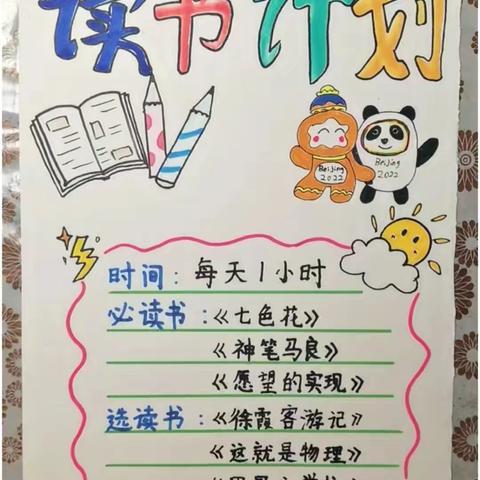 读书计划
Beijing
2022
Beijing
2022
时间：每天1小时
必读书：《七色花》
《神笔马良》
《愿望的实现》
选读书：《徐霞客游记》
《这就是物理》